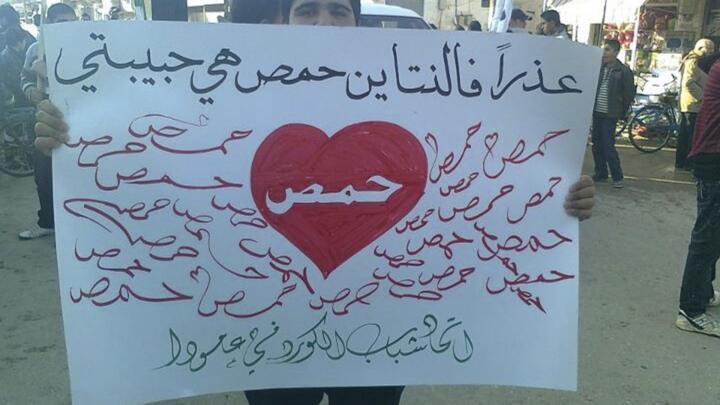 عذراً فالنتاين حمص هي حبيبتي
حمص حمص حمص حمص حمص
حمص حمص حمص حمص حمص
حمص
حمص حمص حمص حمص حمص حمص
حمص حمص حمص حمص حمص حمص
حمص حمص حمص حمص حمص حمص
حمص حمص حمص حمص حمص حمص
اتحاد شباب الكورد في عامودا